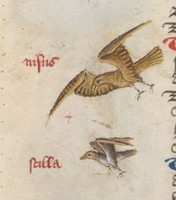 nisus
scilla